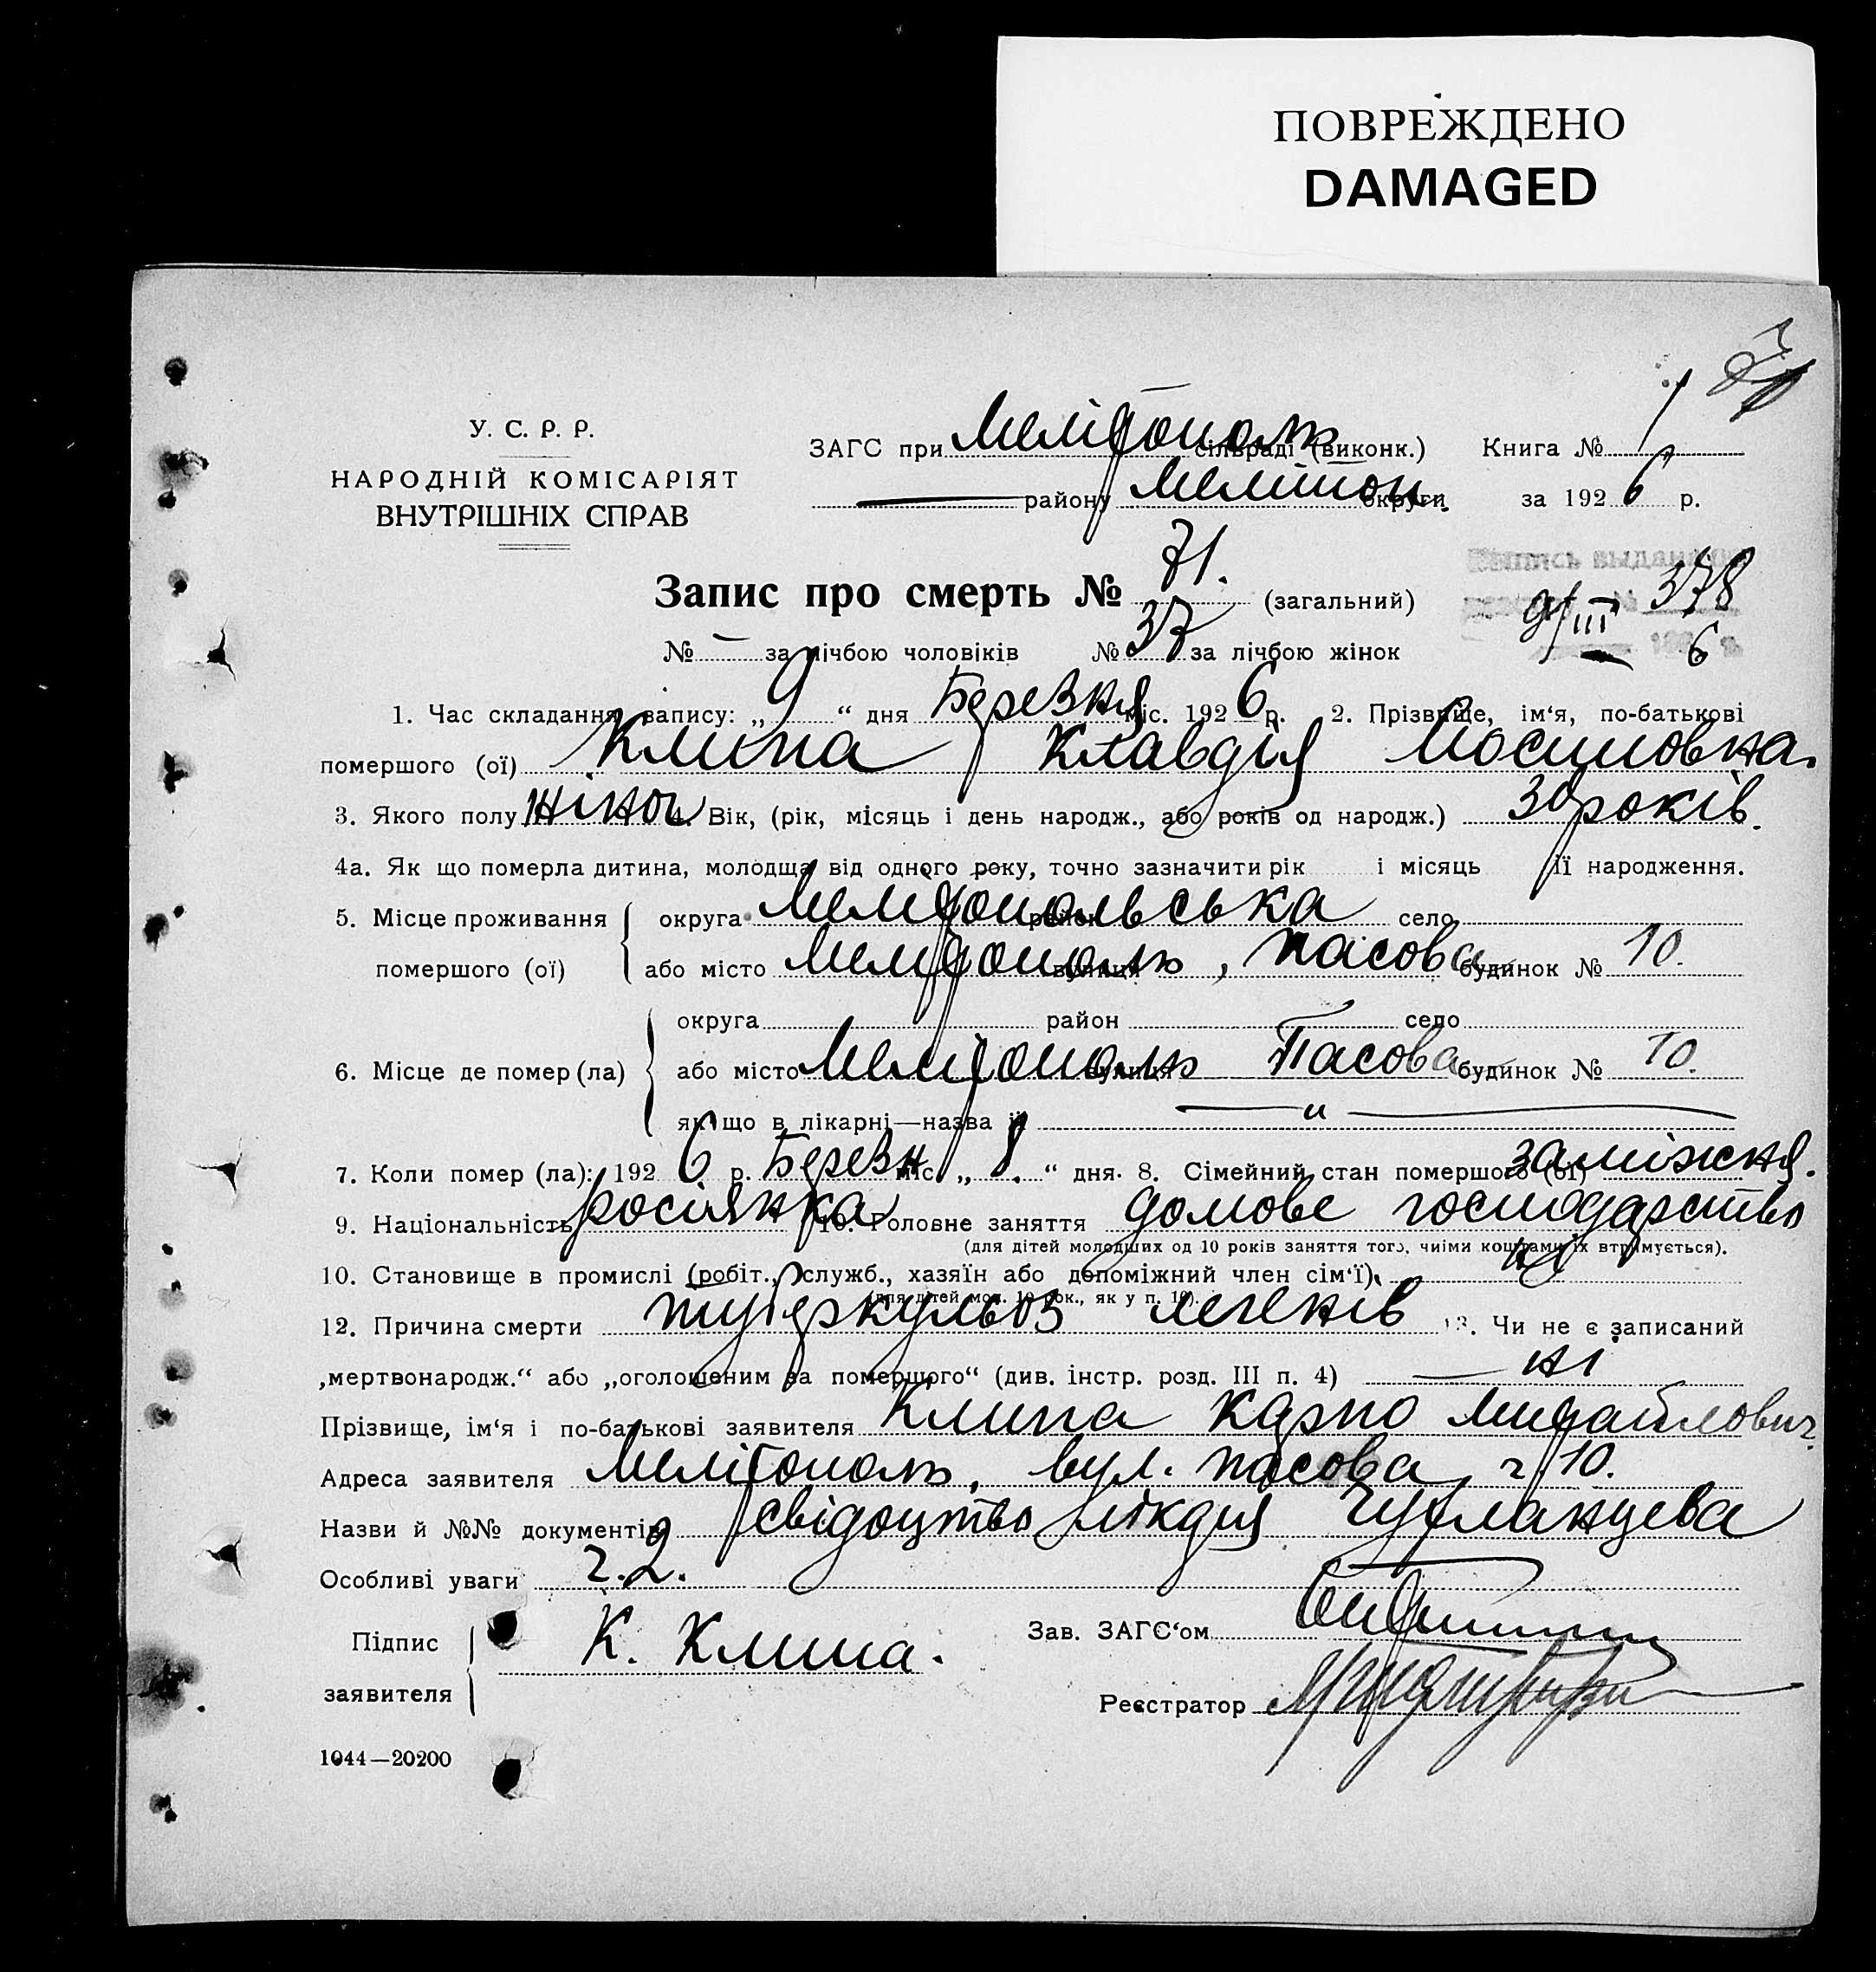 ПОВРЕЖДЕНО
DAMAGED
У. С. Р. Р.
НАРОДНІЙ КОМІСАРІЯТ
ВНУТРІШНІХ СПРАВ
ЗАГС при Мелітополь сільраді (виконк.) Книга № 1
району Мелітоп. округи за 1926 р.
Запис про смерть № 71. (загальний)
Выпись выдана 378
9/III 6
№ — за лічбою чоловіків № 37 за лічбою жінок
1. Час складання запису: „9“ дня Березня міс. 1926 р. 2. Прізвище, ім'я, по-батькові
помершого (ої) Клипа Клавдія Йосиповна.
3. Якого полу жіноч 4. Вік, (рік, місяць і день народж., або років од народж.) 30 років.
4а. Як що померла дитина, молодща від одного року, точно зазначити рік і місяць її народження.
5. Місце проживання округа Мелітопольська район село
помершого (ої) або місто Мелітополь, вулиця Пасова будинок № 10.
округа район село
6. Місце де помер (ла) або місто Мелітополь вулиця Пасова будинок № 10.
як що в лікарні—назва її — „ —
7. Коли помер (ла): 1926 р. Березн міс. „8.“ дня. 8. Сімейний стан помершого (ої) заміжня.
9. Національність росіянка 10. Головне заняття домове господарство
(для дітей молодших од 10 років заняття того, чиїми коштами їх втримується).
10. Становище в промислі (робіт., служб., хазяїн або допоміжний член сім'ї)
(для дітей мол. 10 рок., як у п. 10).
12. Причина смерти туберкульоз легенів 13. Чи не є записаний
„мертвонародж.“ або „оголошеним за померщого“ (див. інстр. розд. III п. 4) — ні
Прізвище, ім'я і по-батькові заявителя Клипа Карпо Михайлович.
Адреса заявителя Мелітополь, вул. Пасова, ч. 10.
Назви й №№ документів свідоцтво лікаря
Особливі уваги ч. 2.
Підпис К. Клипа. Зав. ЗАГС'ом
заявителя
Реєстратор
1044—20200